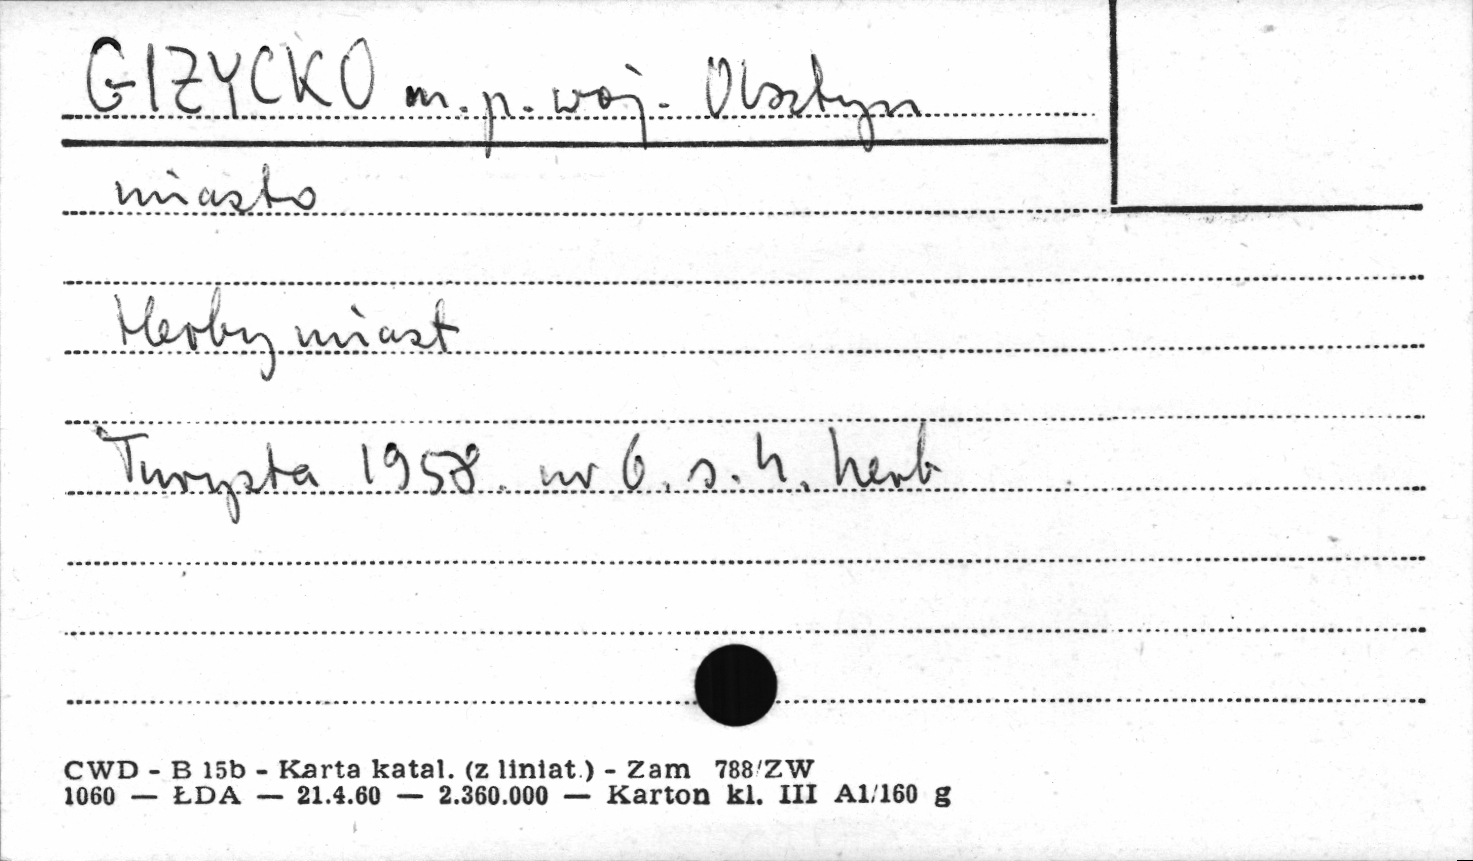 GIZYCKO m. p. woj. Olsztyn
miasto
Herby miast
Turysta 1958. nr 6. s. 4. herb
CWD - B 15b - Karta katal. (z liniat.) - Zam 788/ZW
1060 — ŁDA — 21.4.60 — 2.360.000 — Karton kl. III A1/160 g